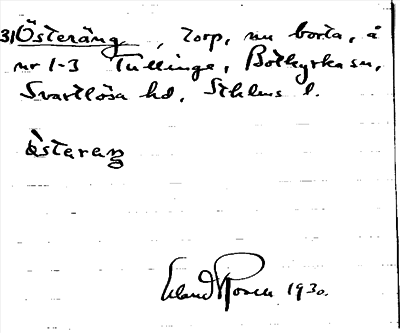 31) Österäng, torp, nu borta, å
nr 1-3 Tullinge, Botkyrka sn,
Svartlösa hd, Sthlms l.
òstaraŋ
Erland Rosell 1930.